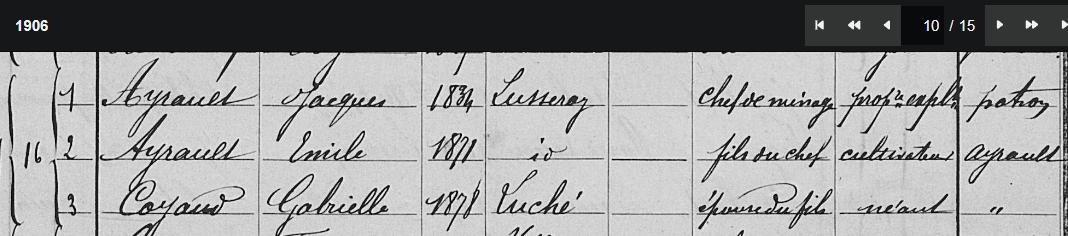 1906 10 / 15
1 Ayrault Jacques 1834 Lusseray chef de ménage propre explt patron
16 2 Ayrault Emile 1871 id fils du chef cultivateur Ayrault
3 Coyaud Gabrielle 1878 Luché épouse du fils néant "